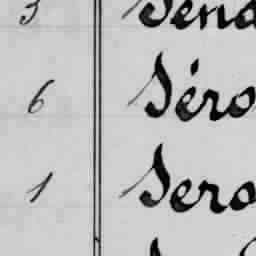 3 Send
6 Séro
1 Sero